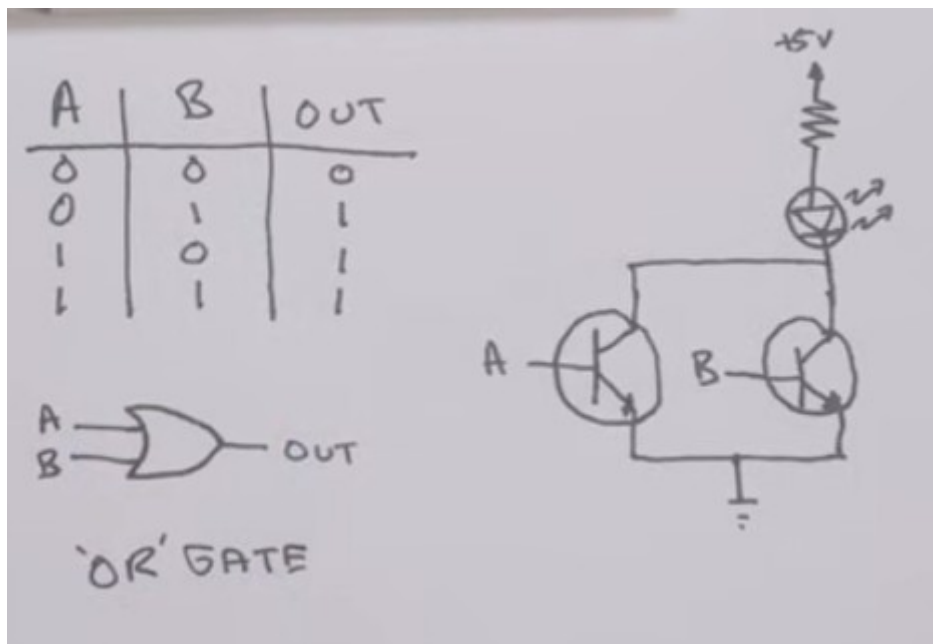 A B OUT
0 0 0
0 1 1
1 0 1
1 1 1
A
B OUT
'OR' GATE
+5V
A B